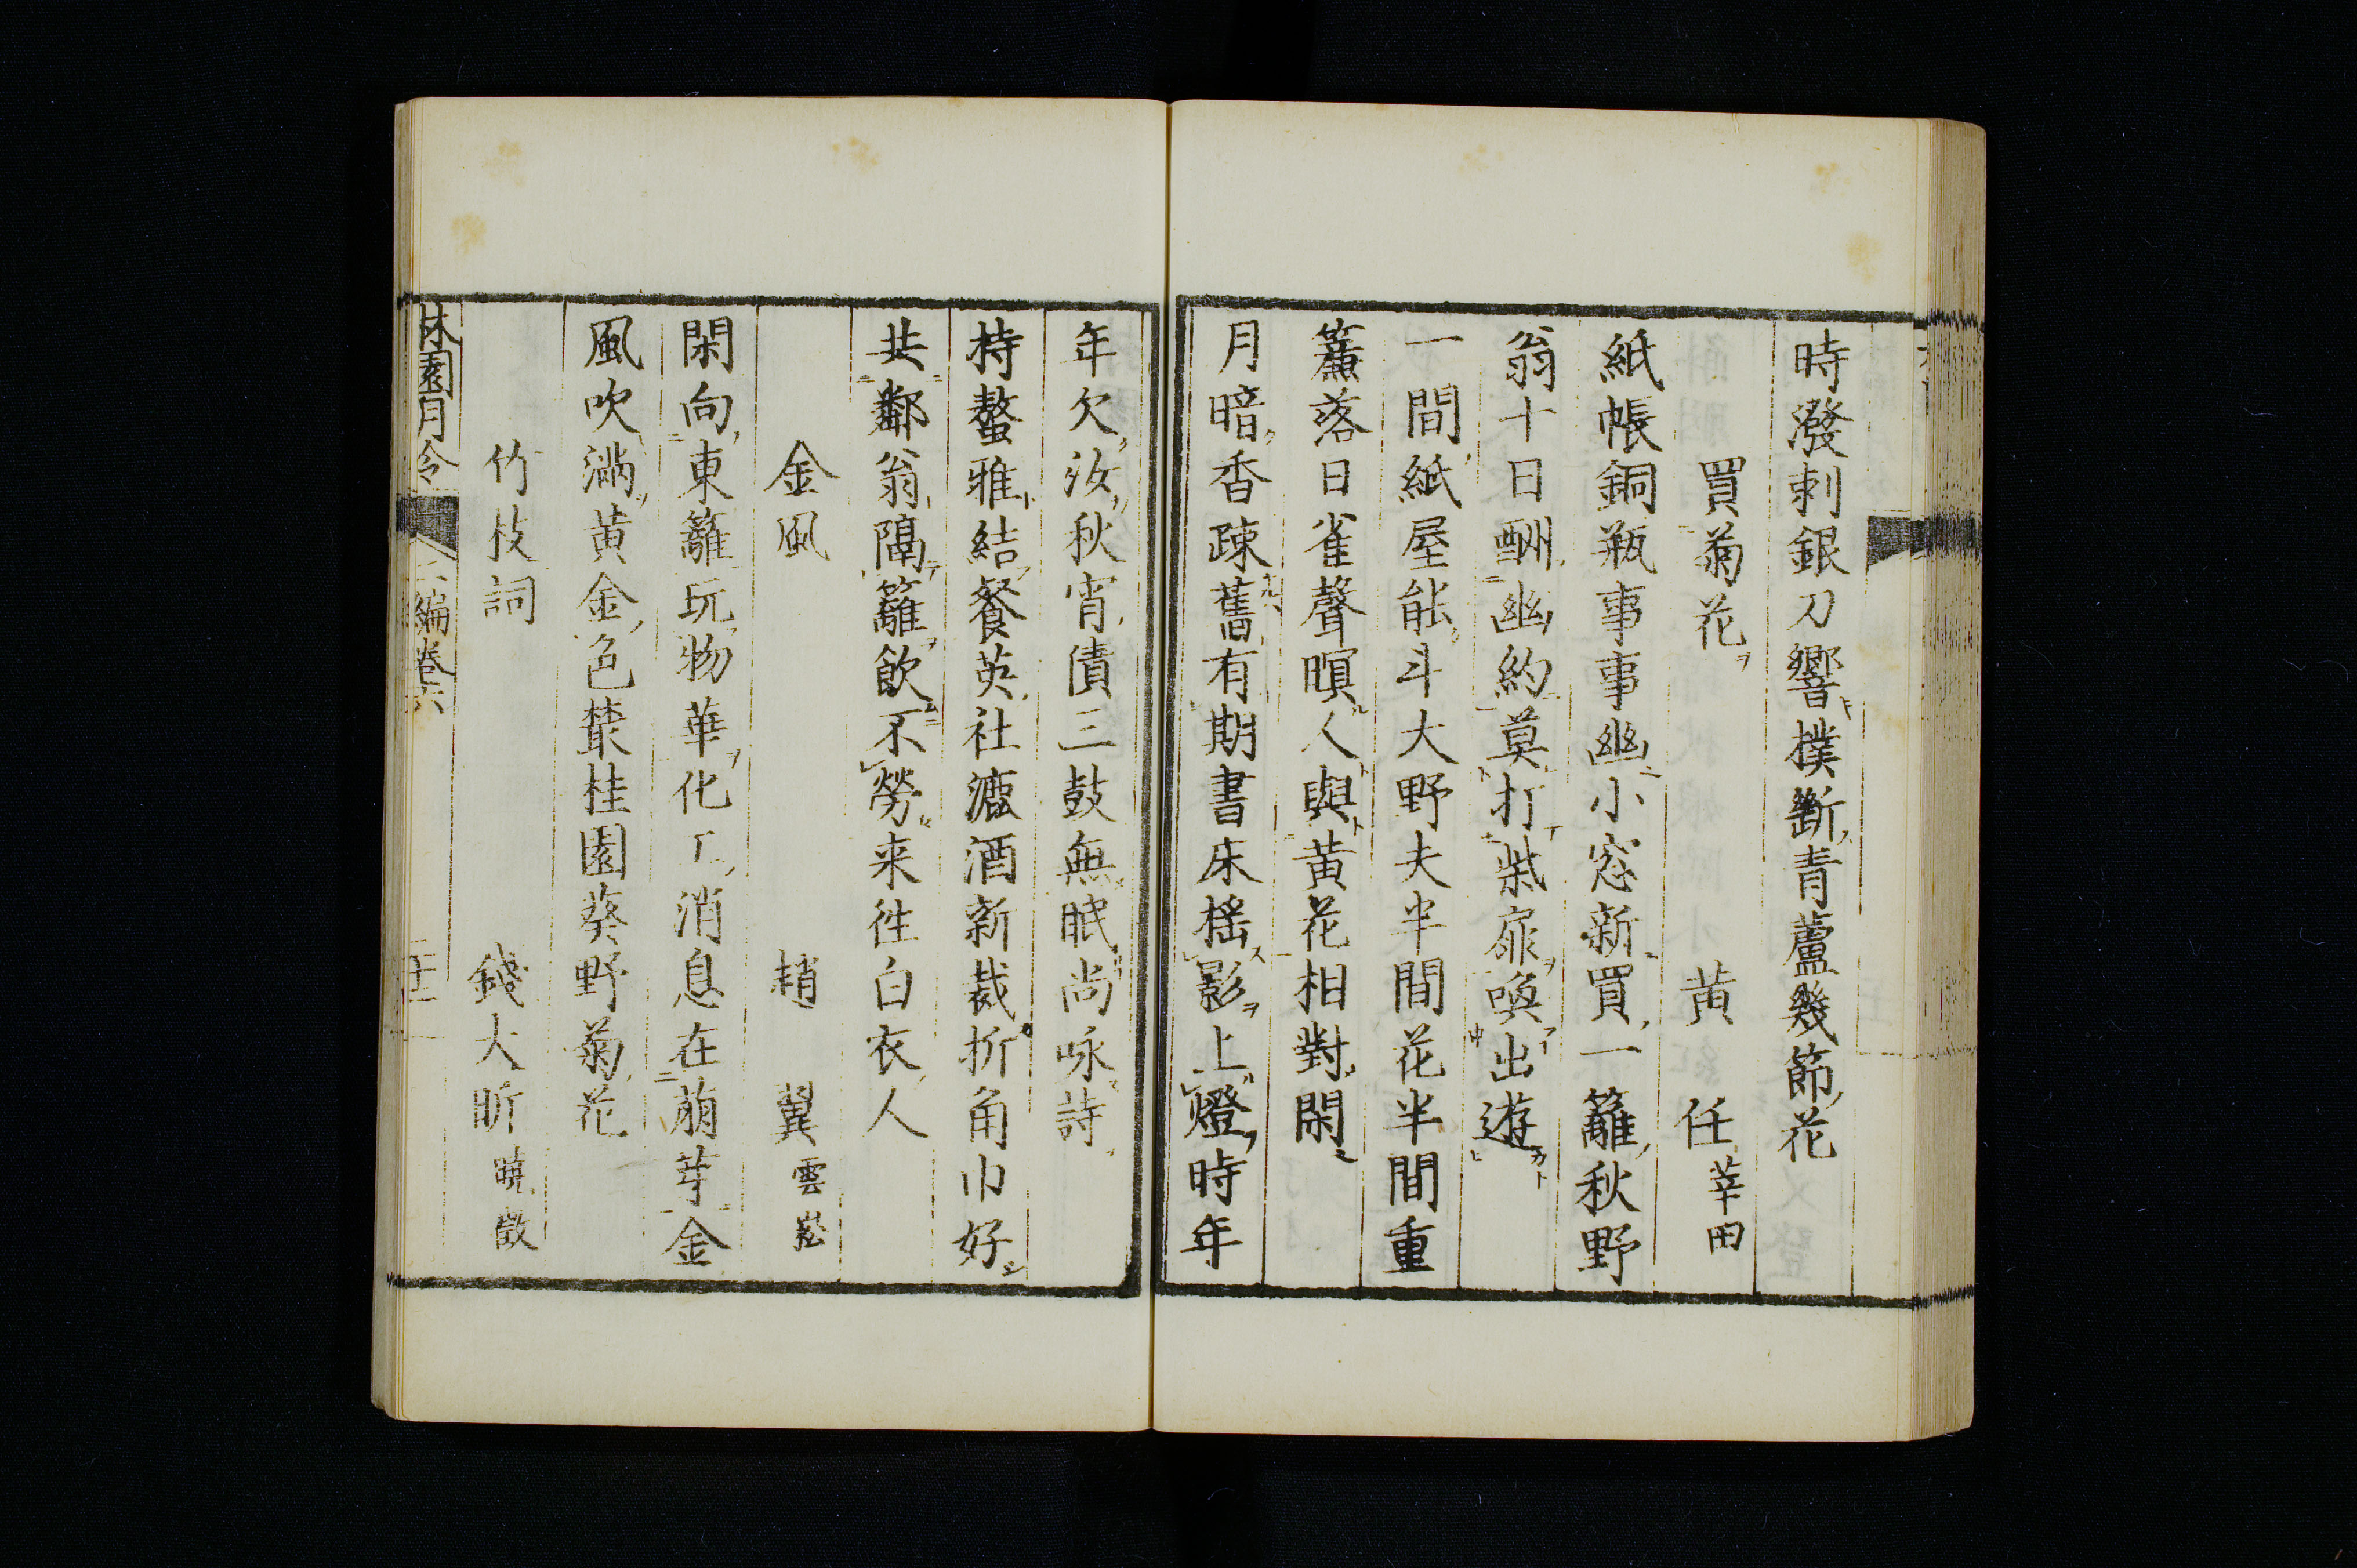 時潑剌銀刀響撲斷青蘆幾節花
買菊花 黄任莘田
紙帳銅瓶事事幽小窓新買一籬秋野
翁十日酬幽約莫打柴扉喚出遊
一間紙屋能斗大野夫半間花半間重
簾落日雀聲暝人與黄花相對閑
月暗香疎舊有期書床搖影上燈時年
年欠汝秋宵債三鼓無眠尚咏詩
持螯雅結餐英社漉酒新裁折角巾好
共鄰翁隔籬飲不勞来徃白衣人
金風 趙翼雲崧
閑向東籬玩物華化工消息在萠芽金
風吹滿黄金色叢桂園葵野菊花
竹枝詞 錢大昕曉徴
林園月令 二編卷六